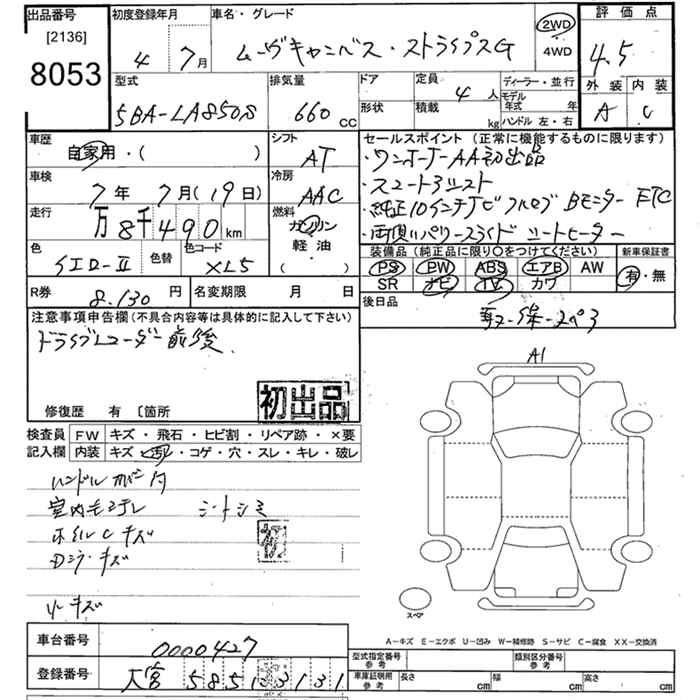 出品番号
[2136]
8053
初度登録年月
4 7月
車名・グレード
ムーヴキャンバス・ストライプスG
2WD
4WD
評価点
4.5
外装 内装
A C
型式
5BA-LA850S
排気量
660 CC
ドア
形状
定員
4人
積載 kg
ディーラー・並行
モデル年式 年
ハンドル 左・右
車歴
自家用・( )
シフト
AT
車検
7年 7月(19日)
冷房
AAC
走行
万8千490km
燃料
ガソリン
軽油
( )
色
色替
色コード
XL5
セールスポイント(正常に機能するものに限ります)
・ワンオーナーAA初出品
・スマートアシスト
・純正10インチナビフルセグ Bモニター ETC
・両側パワースライド シートヒーター
装備品(純正品に限り○をつけてください)
新車保証書
PS PW ABS エアB AW
SR ナビ TV カワ
有・無
R券
8.130円
名変期限 月 日
後日品
注意事項申告欄(不具合内容等は具体的に記入して下さい)
ドライブレコーダー前後
初出品
修復歴 有 〔箇所
検査員記入欄
FW キズ・飛石・ヒビ割・リペア跡・×要
内装 キズ・汚れ・コゲ・穴・スレ・キレ・破レ
室内
シートシミ
キズ
キズ
キズ
A1
スペア
A-キズ E-エクボ U-凹み W-補修跡 S-サビ C-腐食 XX-交換済
車台番号
0000427
登録番号
大宮 585 3131
型式指定番号 参考
類別区分番号 参考
車庫証明用 参考
長さ cm
幅 cm
高さ cm